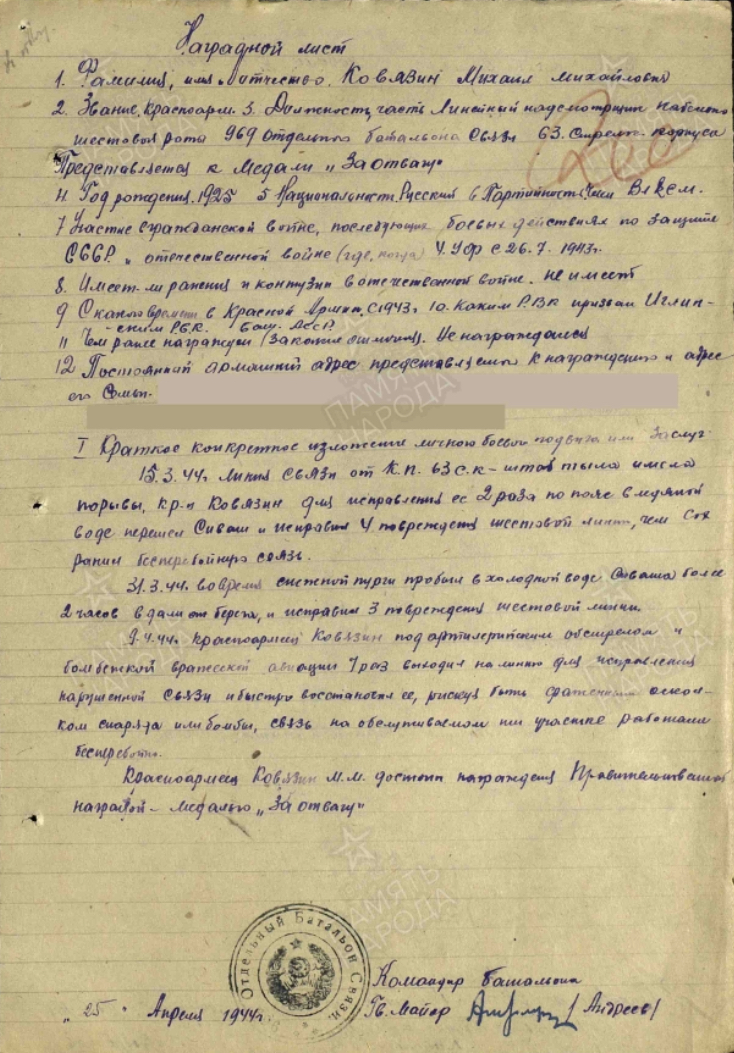 Наградной лист
1. Фамилия, имя и отчество. Ковязин Михаил Михайлович
2. Звание, Красноарм. 3. Должность, часть Линейный надсмотрщик кабельно
шестовой роты 969 отдельного батальона связи 63. Стрелк. корпуса
Представляется к Медали "За отвагу"
4 Год рождения. 1925 5 Национальность Русский 6 Партийность Член ВЛКСМ.
7 Участие в гражданской войне, последующих боевых действиях по защите
СССР. и отечественной войне (где, когда) 4. УФ с 26.7.1943г.
8. Имеет-ли ранения и контузии в отечественной войне. не имеет
9 С какого времени в Красной Армии, с 1943г 10. Каким Р.В.К призван Иглин-
-ским Р.В.К. Баш. АССР.
11 Чем ранее награжден (за какие отличия). Не награждался
12 Постоянный домашний адрес представляемого к награждению и адрес
его семьи.
I Краткое конкретное изложение личного боевого подвига или заслуг
15.3.44г линия связи от К.П. 63 с.к - штаб тыла имела
порывы, кр-ц Ковязин для исправления ее 2 раза по пояс в ледяной
воде перешел Сиваш и исправил 4 повреждения шестовой линии, чем сох
ранил бесперебойную связь.
31.3.44г. во время снежной пурги пробыл в холодной воде Сиваша более
2 часов вдали от берега, и исправил 3 повреждения шестовой линии.
9.4.44г. Красноармеец Ковязин под артилерийским обстрелом и
бомбежкой вражеской авиации 7 раз выходил на линию для исправления
нарушенной связи и быстро восстановил ее, рискуя быть сраженным оскол-
ком снаряда или бомбы, связь на обслуживаемом им участке работала
бесперебойно.
Красноармеец Ковязин М.М. достоин награждения Правительственной
наградой - медалью "За отвагу"
Отдельный Батальон Связи.
Командир батальона
"25" Апреля 1944г. Гв. Майор /Андреев/
ПАМЯТЬ НАРОДА